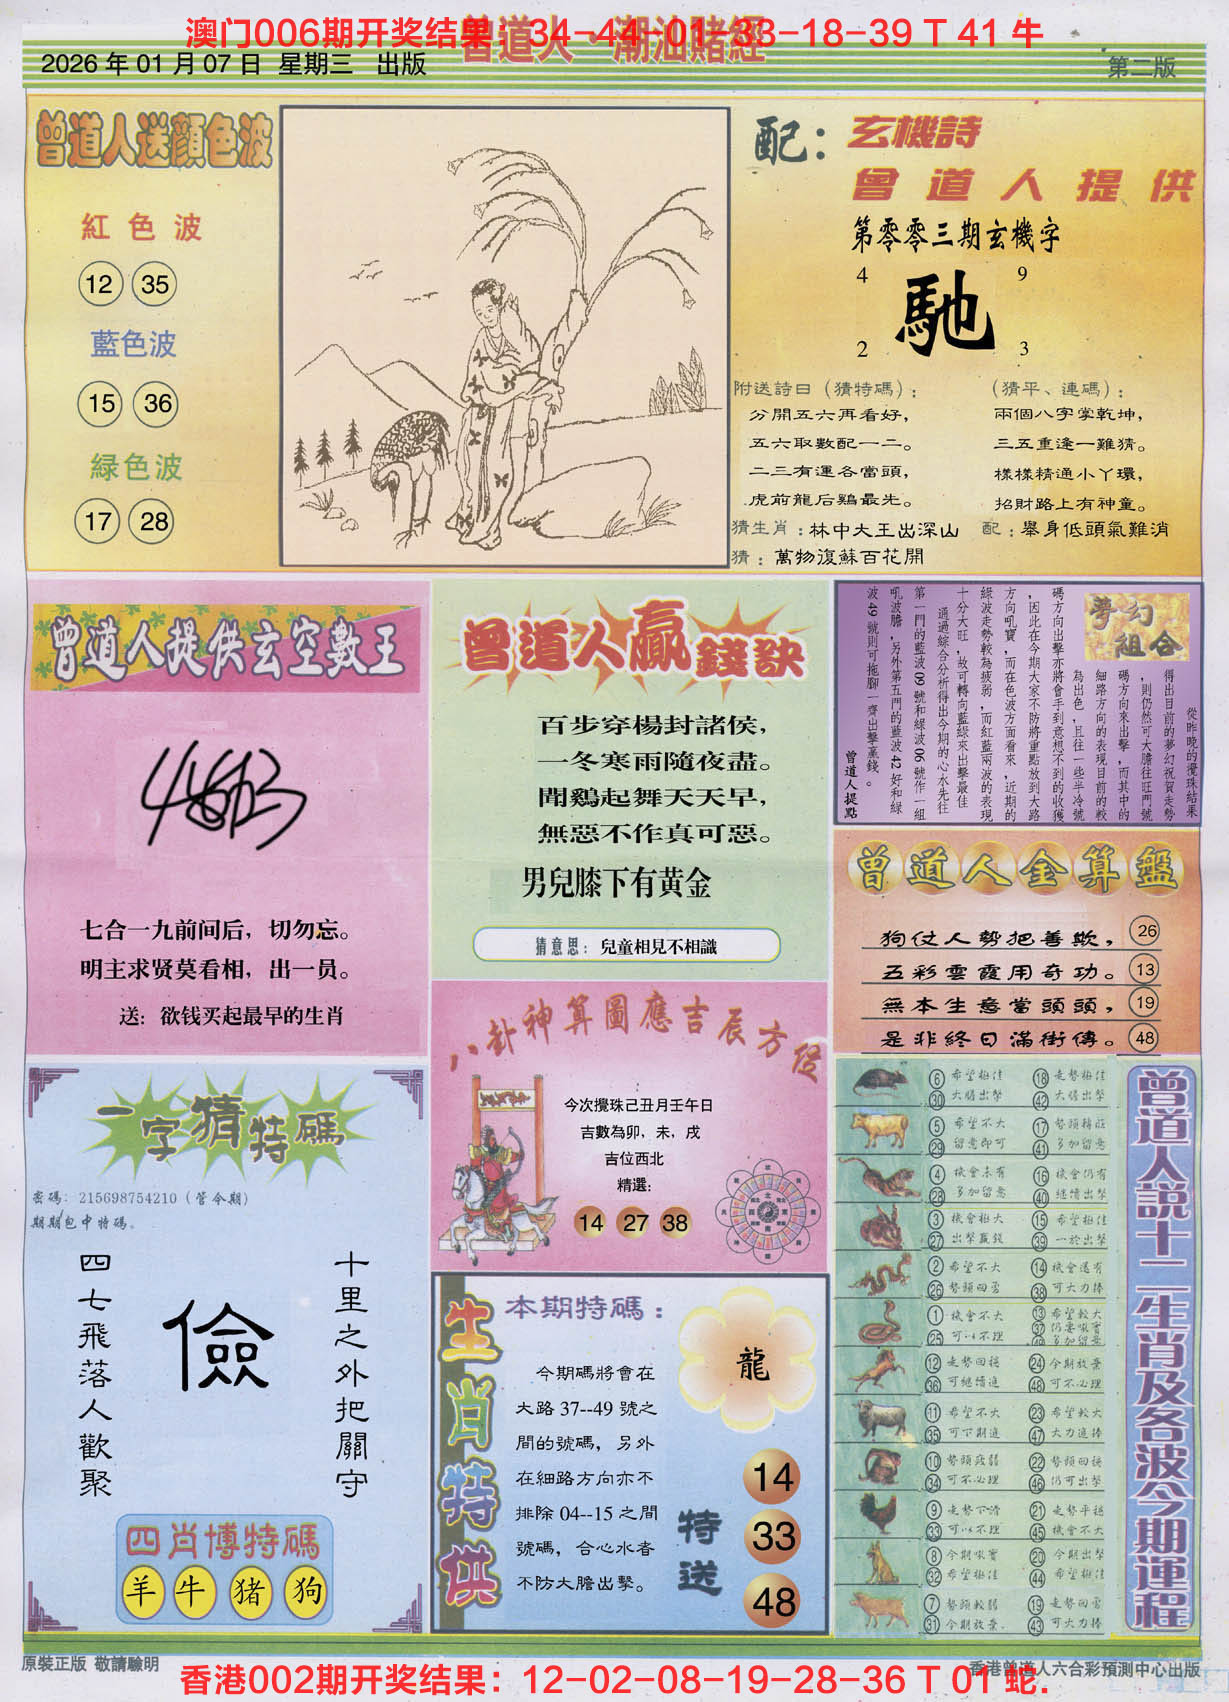 澳门006期开奖结果：34-44-01-33-18-39 T 41 牛
曾道人·潮汕賭經
2026 年 01 月 07 日 星期三 出版
第二版
曾道人送顔色波
紅色波
12 35
藍色波
15 36
緑色波
17 28
配：
玄機詩
曾道人提供
第零零三期玄機字
4 9
馳
2 3
附送詩曰（猜特碼）：
分開五六再看好，
五六取數配一二。
二三有運各當頭，
虎前龍后鷄最先。
（猜平、連碼）：
兩個八字掌乾坤，
三五重逢一難猜。
樣樣精通小丫環，
招財路上有神童。
猜生肖：林中大王出深山
配：舉身低頭氣難消
猜：萬物復蘇百花開
曾道人提供玄空數王
七合一九前间后，切勿忘。
明主求贤莫看相，出一员。
送：欲钱买起最早的生肖
曾道人贏錢訣
百步穿楊封諸侯，
一冬寒雨隨夜盡。
聞鷄起舞天天早，
無惡不作真可惡。
男兒膝下有黄金
猜意思：兒童相見不相識
夢幻組合
從昨晚的攪珠結果
得出目前的夢幻祝賀走勢
，則仍然可大膽往旺門號
碼方向來出擊，而其中的
細路方向的表現目前的較
為出色，且往一些半冷號
碼方向出擊亦將會手到意想不到的收獲
，因此在今期大家不防將重點放到大路
方向吼寶，而在色波方面看來，近期的
綠波走勢較為疲弱，而紅藍兩波的表現
十分大旺，故可轉向藍綠來出擊最佳
通過綜合分析得出今期的心水先往
第一門的藍波 09 號和綠波 06 號作一組
吼波膽，另外第五門的藍波 42 好和綠
波 49 號則可拖腳一齊出擊贏錢。
曾道人提點
曾道人金算盤
狗仗人勢把善欺， 26
五彩雲霞用奇功。 13
無本生意當頭頭， 19
是非終日滿街傳。 48
八卦神算圖應吉辰方位
今次攪珠己丑月壬午日
吉數為卯，未，戌
吉位西北
精選：
14 27 38
一字猜特碼
密碼：215698754210（管今期）
期期包中特碼。
十里之外把關守
儉
四七飛落人歡聚
四肖博特碼
羊 牛 猪 狗
生肖特供
本期特碼：
龍
今期碼將會在
大路 37--49 號之
間的號碼，另外
在細路方向亦不
排除 04--15 之間
號碼，合心水者
不防大膽出擊。
特送
14
33
48
曾道人説十二生肖及各波今期運程
6 希望極佳 18 走勢極佳
30 大膽出擊 42 大膽出擊
5 希望不大 17 勢頭轉旺
29 留意即可 41 多加留意
4 機會未有 16 機會仍有
28 多加留意 40 繼續出擊
3 機會極大 15 希望極佳
27 出擊贏錢 39 一於出擊
2 希望不大 14 機會還有
26 勢頭回勇 38 可大力捧
1 機會不大 13 希望較大
25 可以不理 37 仍要吼實
多加留意
12 走勢回穩 24 今期放棄
36 可繼續追 48 可不必理
11 希望不大 23 希望較大
35 可下期追 47 大力追捧
10 勢頭疲弱 22 勢頭回穩
34 可不必理 46 仍可出擊
9 走勢下滑 21 走勢平穩
33 可以不理 45 機會不大
8 今期吼實 20 今期出擊
32 希望極佳 44 希望極佳
7 勢頭較弱 19 走勢回勇
31 今期放棄 43 可大力捧
原裝正版 敬請驗明
香港曾道人六合彩預測中心出版
香港002期开奖结果：12-02-08-19-28-36 T 01 蛇.